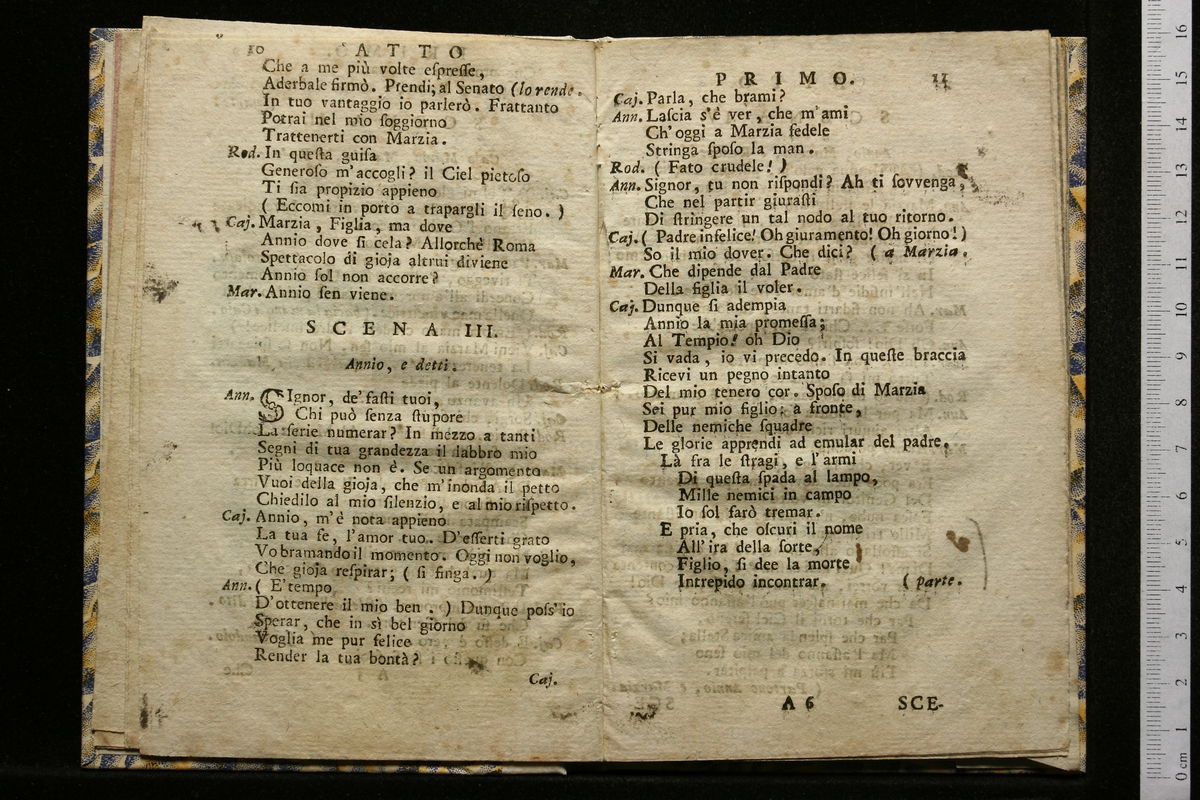 10 ATTO
Che a me più volte eſpreſſe,
Aderbale firmò. Prendi; al Senato (lo rende.
In tuo vantaggio io parlerò. Frattanto
Potrai nel mio ſoggiorno
Trattenerti con Marzia.
Rod. In queſta guiſa
Generoſo m'accogli? il Ciel pietoſo
Ti ſia propizio appieno
( Eccomi in porto a trapargli il ſeno. )
Caj. Marzia, Figlia, ma dove
Annio dove ſi cela? Allorchè Roma
Spettacolo di gioja altrui diviene
Annio ſol non accorre?
Mar. Annio ſen viene.
SCENA III.
Annio, e detti.
Ann. SIgnor, de' faſti tuoi,
Chi può ſenza ſtupore
La ſerie numerar? In mezzo a tanti
Segni di tua grandezza il labbro mio
Più loquace non è. Se un argomento
Vuoi della gioja, che m'inonda il petto
Chiedilo al mio ſilenzio, e al mio riſpetto.
Caj. Annio, m'è nota appieno
La tua fe, l'amor tuo. D'eſſerti grato
Vo bramando il momento. Oggi non voglio,
Che gioja reſpirar; ( ſi finga. )
Ann. ( E' tempo
D'ottenere il mio ben. ) Dunque poſſ'io
Sperar, che in sì bel giorno
Voglia me pur felice
Render la tua bontà?
Caj.
PRIMO. 11
Caj. Parla, che brami?
Ann. Laſcia s'è ver, che m'ami
Ch'oggi a Marzia fedele
Stringa ſpoſo la man.
Rod. ( Fato crudele! )
Ann. Signor, tu non riſpondi? Ah ti ſovvenga,
Che nel partir giuraſti
Di ſtringere un tal nodo al tuo ritorno.
Caj. ( Padre infelice! Oh giuramento! Oh giorno! )
So il mio dover. Che dici? ( a Marzia.
Mar. Che dipende dal Padre
Della figlia il voler.
Caj. Dunque ſi adempia
Annio la mia promeſſa;
Al Tempio! oh Dio
Si vada, io vi precedo. In queſte braccia
Ricevi un pegno intanto
Del mio tenero cor. Spoſo di Marzia
Sei pur mio figlio; a fronte,
Delle nemiche ſquadre
Le glorie apprendi ad emular del padre.
Là fra le ſtragi, e l'armi
Di queſta ſpada al lampo,
Mille nemici in campo
Io ſol farò tremar.
E pria, che oſcuri il nome
All'ira della ſorte,
Figlio, ſi dee la morte
Intrepido incontrar. ( parte.
A 6 SCE-
0 cm 1 2 3 4 5 6 7 8 9 10 11 12 13 14 15 16